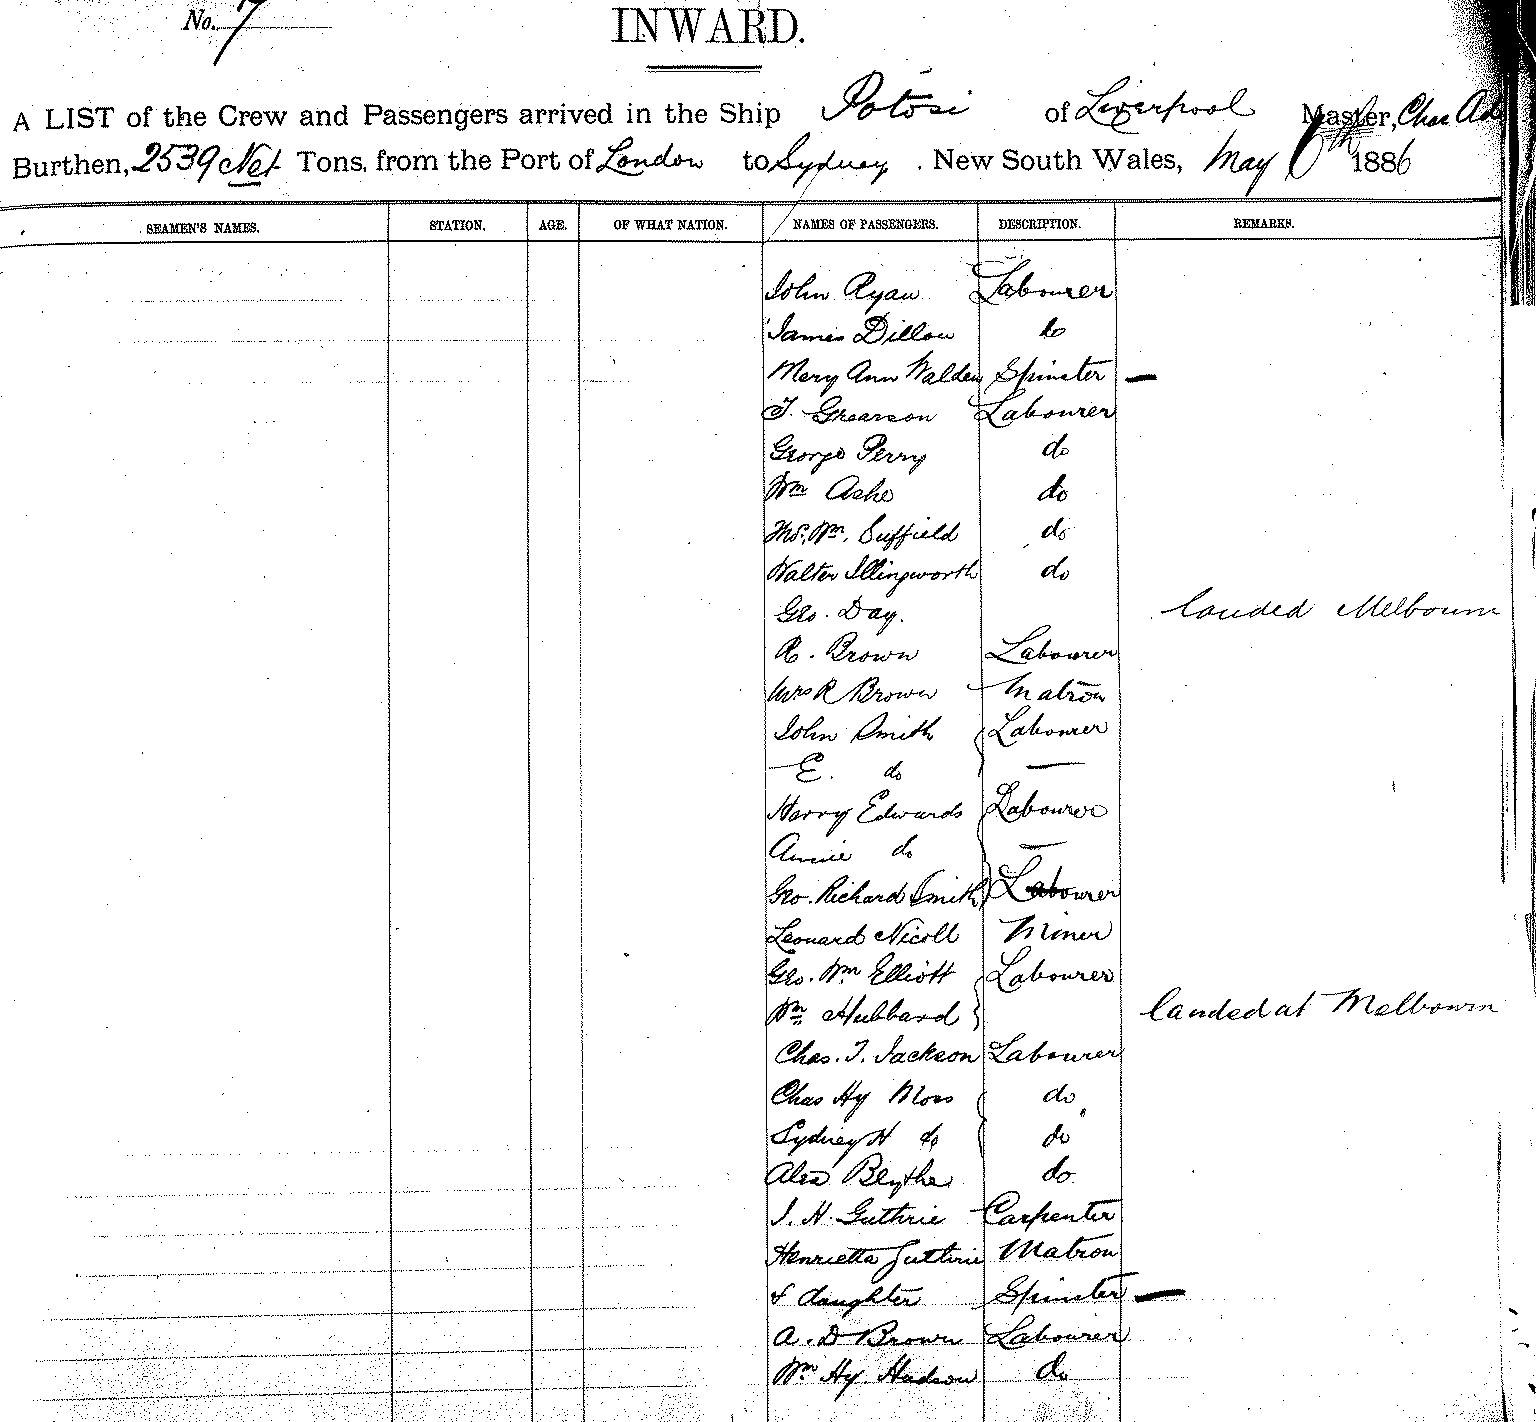 No. 7
INWARD.
A LIST of the Crew and Passengers arrived in the Ship Potosi of Liverpool Master, Chas
Burthen, 2539 Net Tons, from the Port of London to Sydney. New South Wales, May 1886
SEAMEN'S NAMES. STATION. AGE. OF WHAT NATION. NAMES OF PASSENGERS. DESCRIPTION. REMARKS.
John Ryan Labourer
James Dillon do
Mary Ann Walden Spinster —
T. Grearson Labourer
George Perry do
Wm Ashe do
Thos. Wm. Suffield do
Walter Illingworth do
Geo. Day. landed Melbourn
R. Brown Labourer
Mrs R Brown Matron
John Smith Labourer
E. do —
Harry Edwards Labourer
Annie do —
Geo. Richard Smith Labourer
Leonard Nicoll Miner
Geo. Wm Elliott Labourer
Wm Hubbard landed at Melbourn
Chas. T. Jackson Labourer
Chas Hy Moss do
Sydney H do do
Alex Blythe do
J. H. Guthrie Carpenter
Henrietta Guthrie Matron
& daughter Spinster —
A. D Brown Labourer
Wm Hy Hudson do